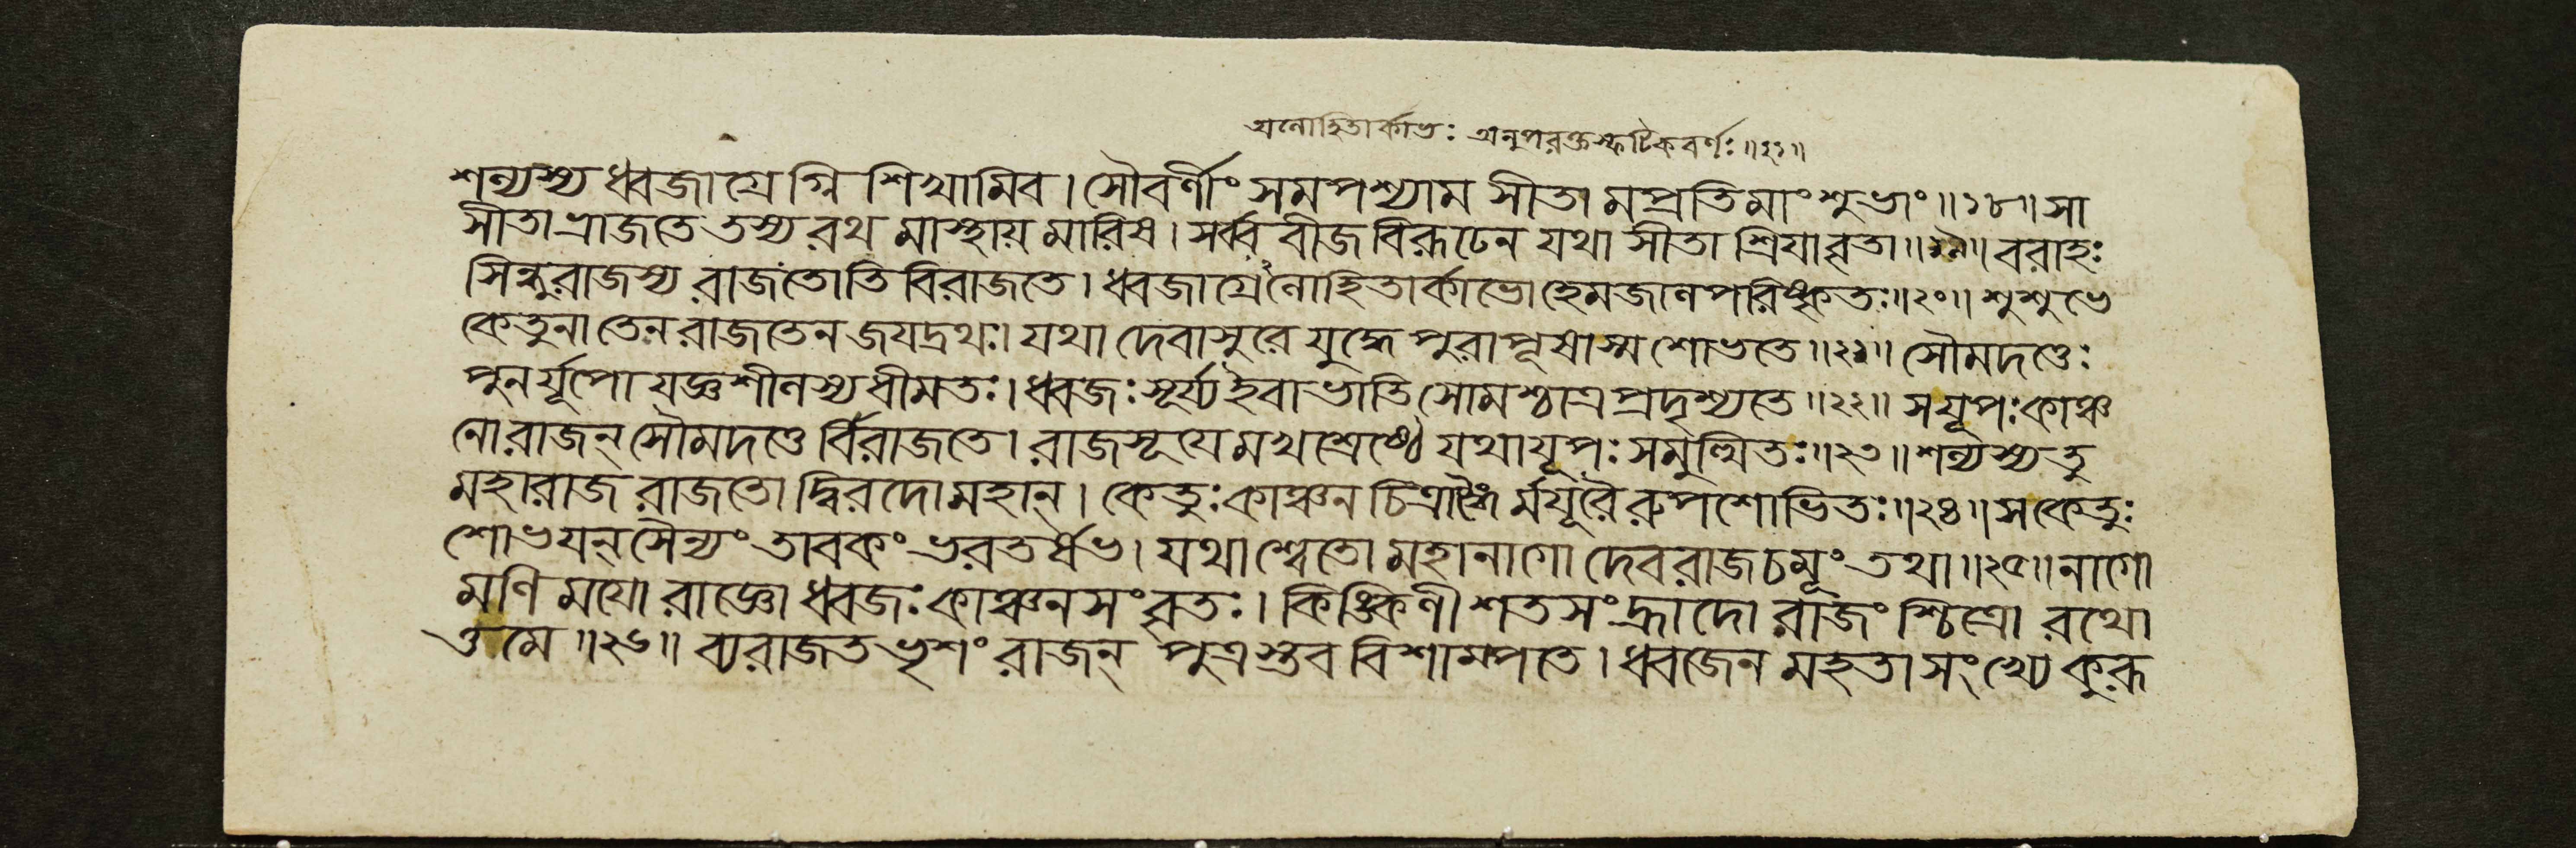 অলোহিতার্কাভঃ অনুপরক্তস্ফটিকবর্ণঃ॥২১॥
শল্যস্য ধ্বজাগ্রেগ্নি শিখামিব। সৌবর্ণীং সমপশ্যাম সীতামপ্রতিমাং শুভাং॥১৮॥ সা
সীতা ভ্রাজতে তস্য রথ মাস্থায় মারিষ। সর্ব্ব বীজ বিরূঢেন যথা সীতা শ্রিয়াবৃতা॥১৯॥ বরাহঃ
সিন্ধুরাজস্য রাজতোতি বিরাজতে। ধ্বজাগ্রেলোহিতার্কাভো হেমজালপরিষ্কৃতঃ॥২০॥ শুশুভে
কেতুনা তেন রাজতেন জযদ্রথঃ। যথা দেবাসুরে যুদ্ধে পুরাপূষাস্ম শোভতে॥২১॥ সৌমদত্তেঃ
পুনর্যূপো যজ্ঞশীলস্য ধীমতঃ। ধ্বজঃ সূর্য্য ইবাভাতি সোমশ্চাত্র প্রদৃশ্যতে॥২২॥ সযূপঃ কাঞ্চ
নো রাজন্ সৌমদত্তে র্বিরাজতে। রাজসূযে মখশ্রেষ্ঠে যথাযূপঃ সমুচ্ছ্রিতঃ॥২৩॥ শল্যস্য তু
মহারাজ রাজতো দ্বিরদো মহান্। কেতুঃ কাঞ্চন চিত্রাঙ্গৈ র্ময়ূরৈ রুপশোভিতঃ॥২৪॥ সকেতুঃ
শোভযন্ সৈন্যং তাবকং ভরতর্ষভ। যথা শ্বেতো মহানাগো দেবরাজচমূং তথা॥২৫॥ নাগো
মণি ময়ো রাজ্ঞো ধ্বজঃ কাঞ্চনসংবৃতঃ। কিঙ্কিণীশতসংহ্রাদো রাজংশ্চিত্রো রথো
ত্তমে॥২৬॥ ব্যরাজত ভৃশং রাজন্ পুত্রস্তব বিশাম্পতে। ধ্বজেন মহতা সংখ্যে কুরূ